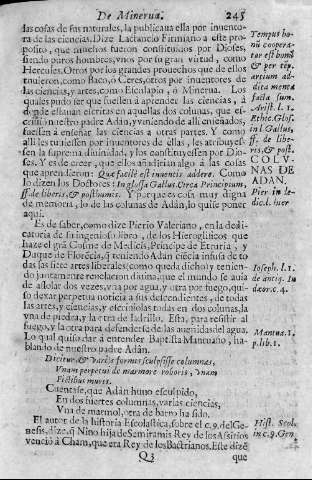 De Minerua. 245
las cosas de sus naturales, la publicaua ella por inuento-
ra de las ciencias. Dize Lactancio Firmiano a este pro-
posito, que muchos fueron constituidos por Dioses,
siendo puros hombres, vnos por su gran virtud, como
Hercules. Otros por los grandes prouechos que de ellos
tuuieron, como Baco, ò Ceres, otros por inuentores de
las ciencias, y artes, como Esculapio, ò Minerua. Los
quales pudo ser que fuessen à aprender las ciencias, à
donde estauan escritas en aquellas dos colunas, que es-
criuiò nuestro padre Adan, y veniendo de alli enseñados,
fuessen à enseñar las ciencias a otras partes. Y como
alli les tuuiessen por inuentores de ellas, les atribuyes-
sen la suprema diuinidad, y los constituyessen por Dio-
ses. Y es de creer, que ellos añadirian algo à las cosas
que aprendieron: Que facilè est inuentis addere. Como
lo dizen los Doctores: In glossa Gallus. Circa Principium,
ff. de liberis, & posthumis. Y porque es cosa muy digna
de memoria, lo de las colunas de Adan, lo quise poner
aqui.
Es de saber, como dize Pierio Valeriano, en la dedi-
catoria de su ingenioso libro, de los Hieroglificos que
haze el grã Cosme de Medicis, Principe de Etruria, y
Duque de Florẽcia, q̃ teniendo Adan ciẽcia infusa de to
das las siete artes liberales; como queda dicho, y tenien-
do juntamente reuelacion diuina, que el mundo se auia
de assolar dos vezes, vna por agua, y otra por fuego, qui-
so dexar perpetua noticia a sus descendientes, de todas
las artes, y ciencias, y escriuiolas todas en dos colunas, la
vna de piedra, y la otra de ladrillo. Esta, para resistir al
fuego, y la otra para defenderse de las auenidas del agua.
Lo qual quiso dar à entender Baptista Mantuano, ha-
blando de nuestro padre Adàn.
Dicitur, & varias formas sculpsisse columnas,
Vnam perpetui de marmore roboris, vnam
Fictibus muris.
Cuentase, que Adàn huuo esculpido,
En dos fuertes columnas, varias ciencias,
Vna de marmol, otra de barro ha sido.
El autor de la historia Escolastica, sobre el c. 9. del Ge-
nesis, dize, q̃ Nino hijo de Semiramis Rey de los Assirios
venciò à Cham, que era Rey de los Bactrianos. Este dizẽ
Q3 que
Tempus bo-
nũ coopera-
tor est bonũ
& per tẽp.
artium ad-
dita menta
facta sunt.
Arist. l. 1.
Ethic. Glos.
in l. Gallus,
ff. de libe-
ris, & post.
COLV-
NAS DE
ADAN.
Pier. in le-
dic. l. huer
Ioseph. l. 1.
de antiq. Iu
dæor. c. 4.
Mantua. 1.
p. lib. 1.
Hist. Scols.
in c. 9. Gen.